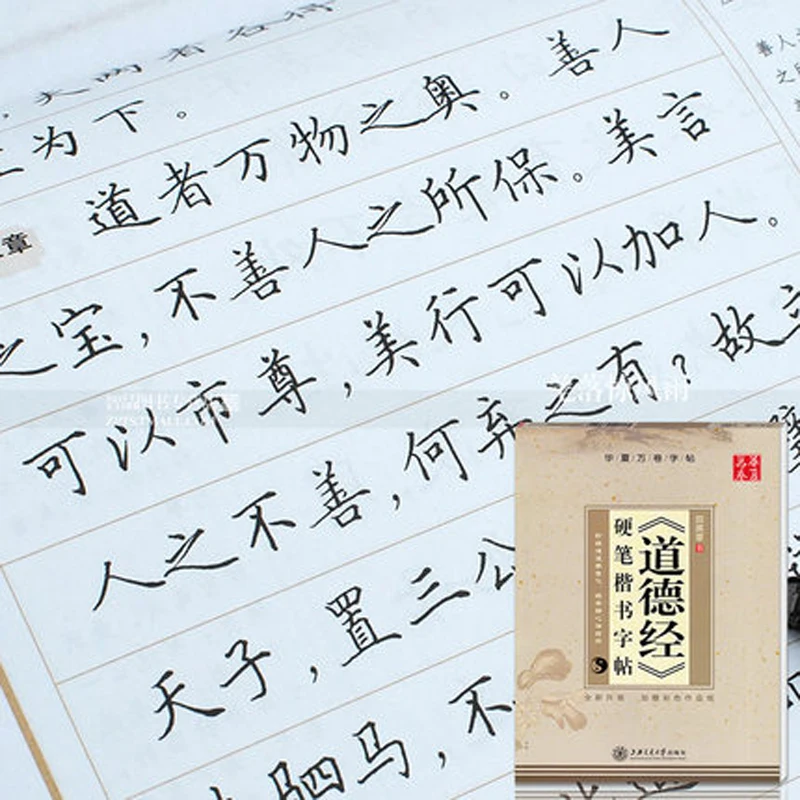 大两者各得
为下。
章
道者万物之奥。善人
之宝,不善人之所保。美言
可以市尊,美行可以加人。
人之不善,何弃之有?故立
天子,置三公
驷马,不
善人
之所
华夏万卷字帖
《道德经》
硬笔楷书字帖
上海交通大学出版社